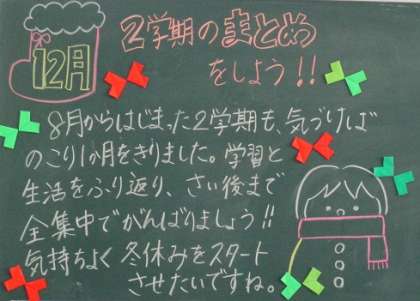 12月
2学期のまとめ
をしよう!!
8月からはじまった2学期も、気づけば
のこり1か月をきりました。学習と
生活をふり返り、さい後まで
全集中でがんばりましょう!!
気持ちよく冬休みをスタート
させたいですね。